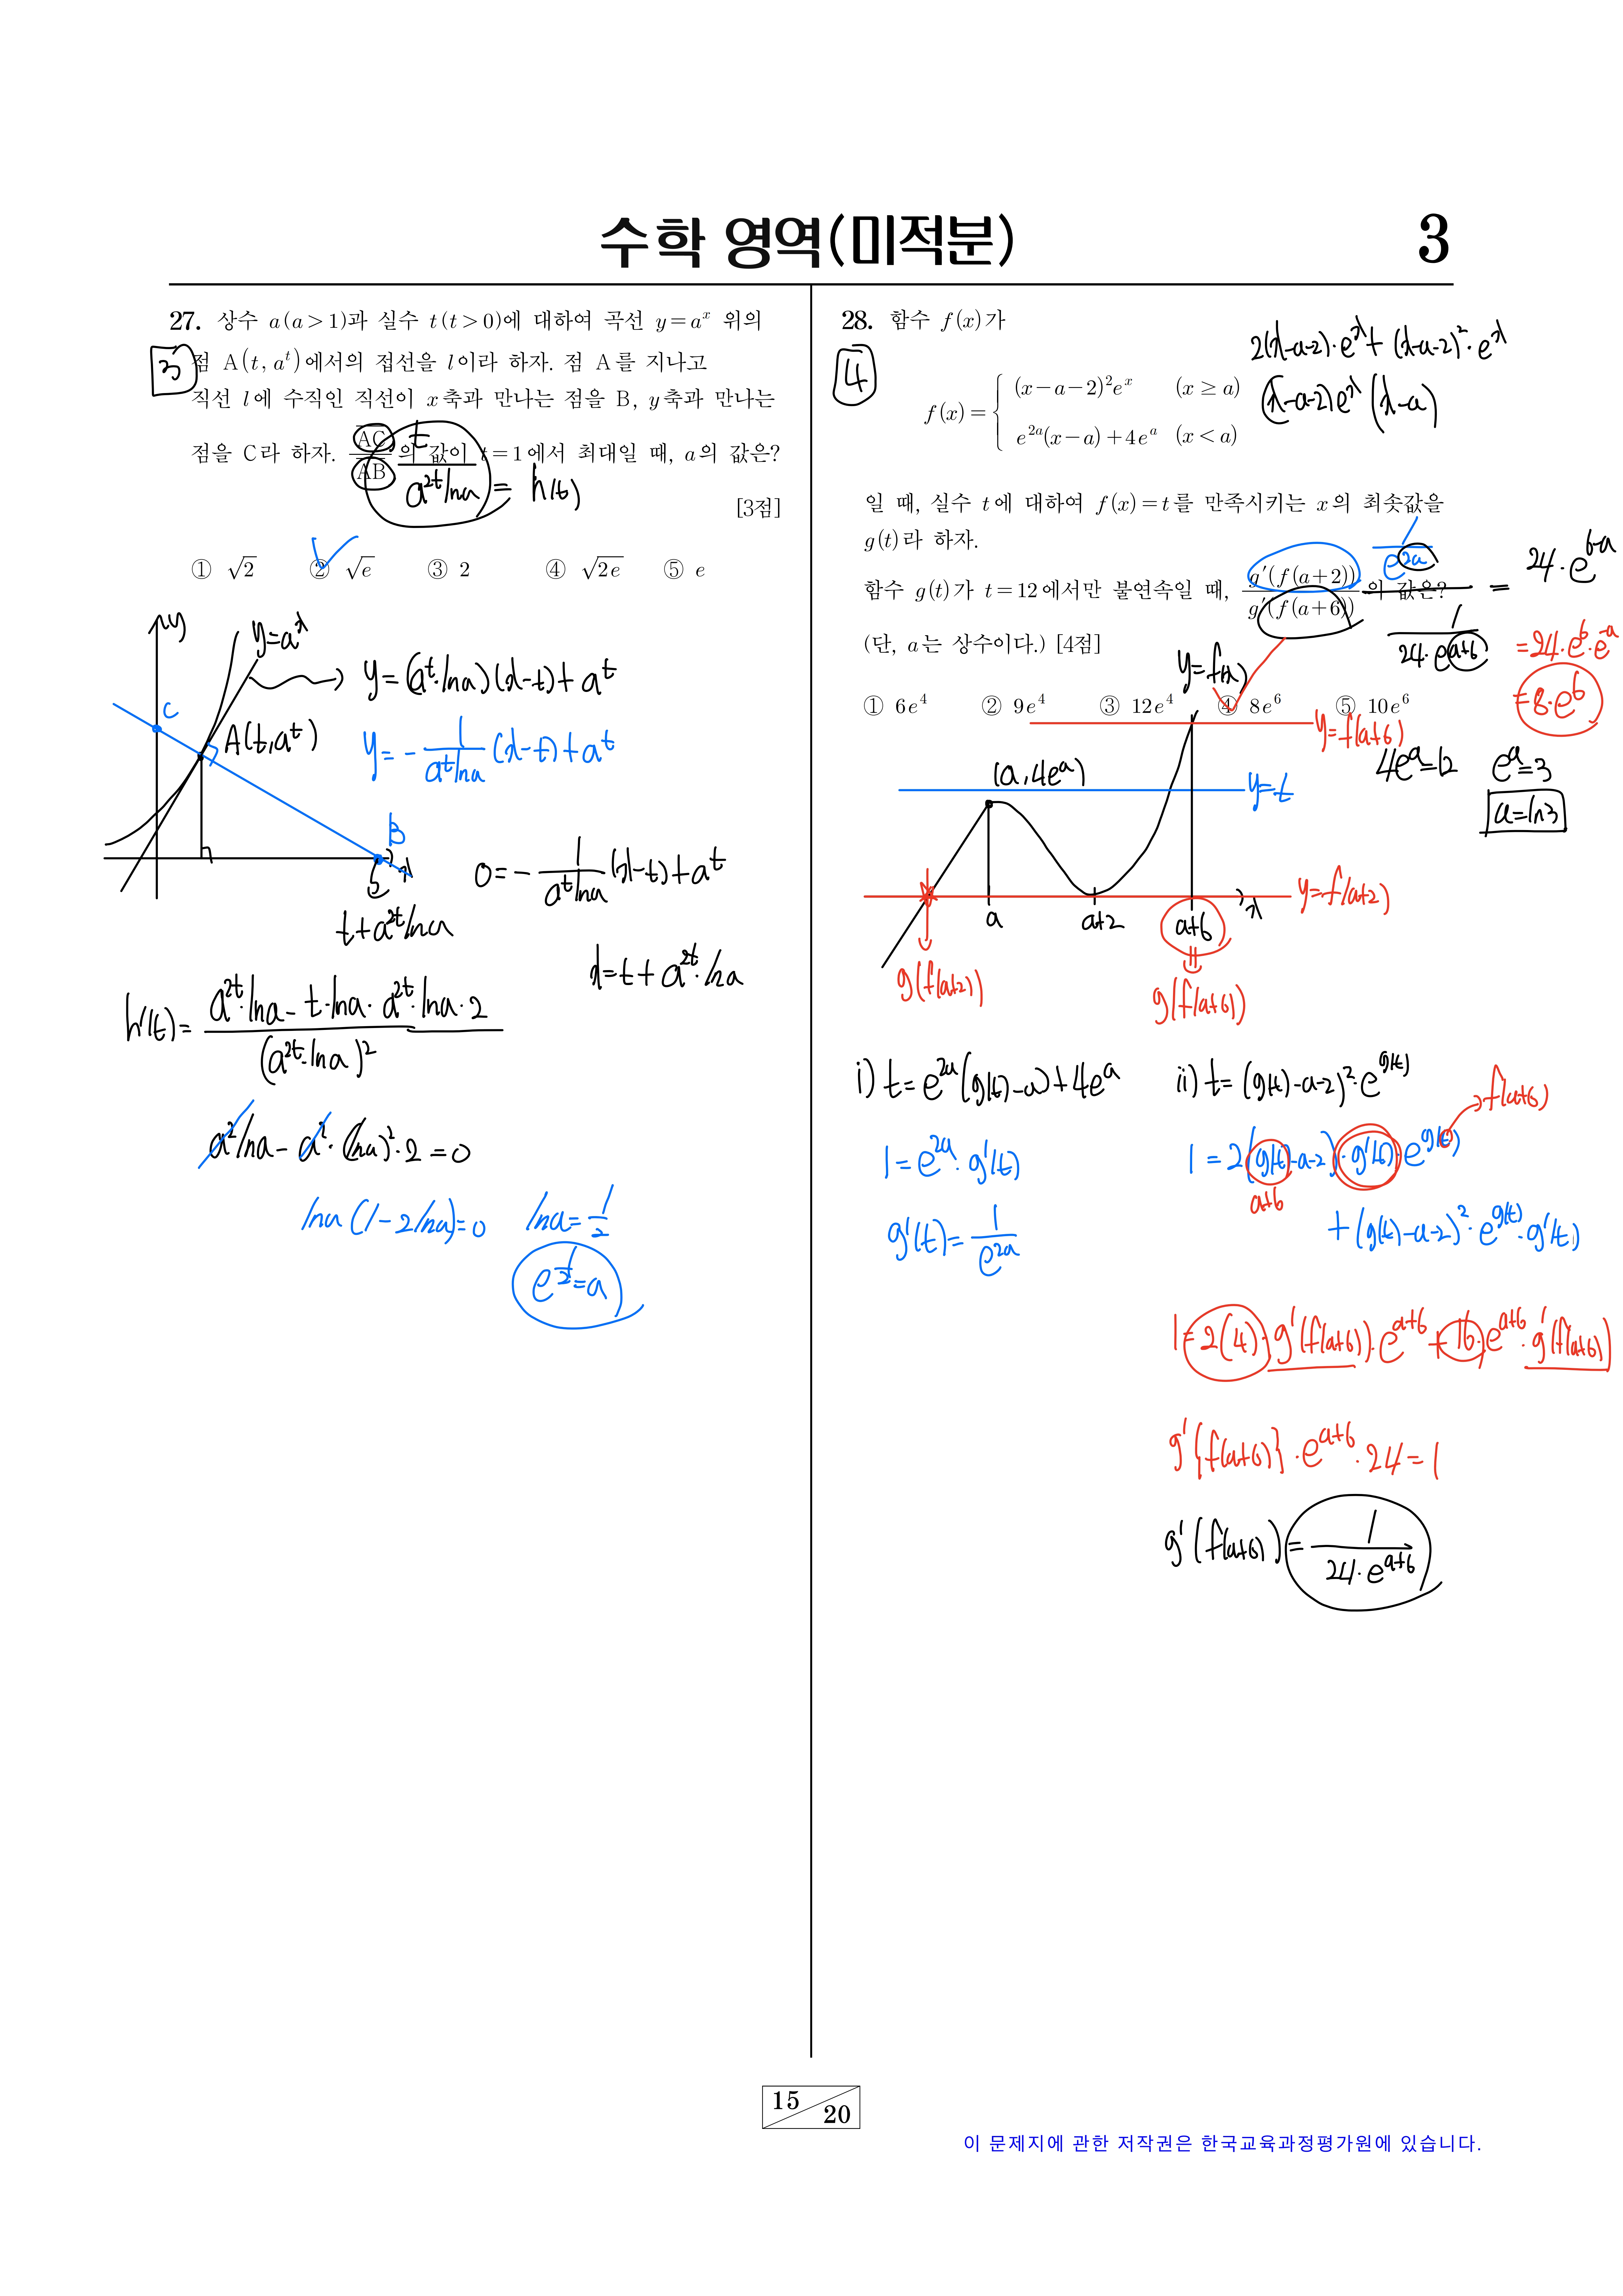 수학 영역(미적분)
3
27. 상수 a(a>1)과 실수 t(t>0)에 대하여 곡선 y=a^x 위의
점 A(t, a^t)에서의 접선을 l이라 하자. 점 A를 지나고
직선 l에 수직인 직선이 x축과 만나는 점을 B, y축과 만나는
점을 C라 하자. AC/AB 의 값이 t=1에서 최대일 때, a의 값은?
[3점]
3
t/(a^{2t} ln a) = h(t)
① √2 ② √e ③ 2 ④ √2e ⑤ e
y
y=a^x
y=(a^t·ln a)(x-t)+a^t
C
A(t,a^t)
y=-1/(a^t ln a) (x-t)+a^t
B
x
0=-1/(a^t ln a) (x-t)+a^t
t+a^{2t} ln a
x=t+a^{2t}·ln a
h'(t)= (a^{2t}·ln a - t·ln a·a^{2t}·ln a·2)/(a^{2t}·ln a)^2
a^2 ln a - a^2·(ln a)^2·2=0
ln a(1-2ln a)=0 ln a=1/2
e^{1/2}=a
28. 함수 f(x)가
4
2(x-a-2)·e^x+(x-a-2)^2·e^x
(x-a-2)e^x(x-a)
f(x)= { (x-a-2)^2 e^x (x≥a)
e^{2a}(x-a)+4e^a (x<a)
일 때, 실수 t에 대하여 f(x)=t를 만족시키는 x의 최솟값을
g(t)라 하자.
함수 g(t)가 t=12에서만 불연속일 때, g'(f(a+2))/g'(f(a+6)) 의 값은?
(단, a는 상수이다.) [4점]
1/e^{2a}
1/(24·e^{a+6})
= 24·e^{6-a}
=24·e^6·e^{-a}
=8·e^6
① 6e^4 ② 9e^4 ③ 12e^4 ④ 8e^6 ⑤ 10e^6
y=f(x)
y=f(a+6)
4e^a=12 e^a=3
a=ln3
(a, 4e^a)
y=t
y=f(a+2)
a a+2 a+6 x
g(f(a+2))
g(f(a+6))
i) t=e^{2a}(g(t)-a)+4e^a
1=e^{2a}·g'(t)
g'(t)=1/e^{2a}
ii) t=(g(t)-a-2)^2·e^{g(t)}
f(a+6)
1=2(g(t)-a-2)·g'(t)·e^{g(t)}
a+6
+(g(t)-a-2)^2·e^{g(t)}·g'(t)
1=2(4)·g'(f(a+6))·e^{a+6}+16·e^{a+6}·g'(f(a+6))
g'{f(a+6)}·e^{a+6}·24=1
g'(f(a+6))=1/(24·e^{a+6})
15
20
이 문제지에 관한 저작권은 한국교육과정평가원에 있습니다.